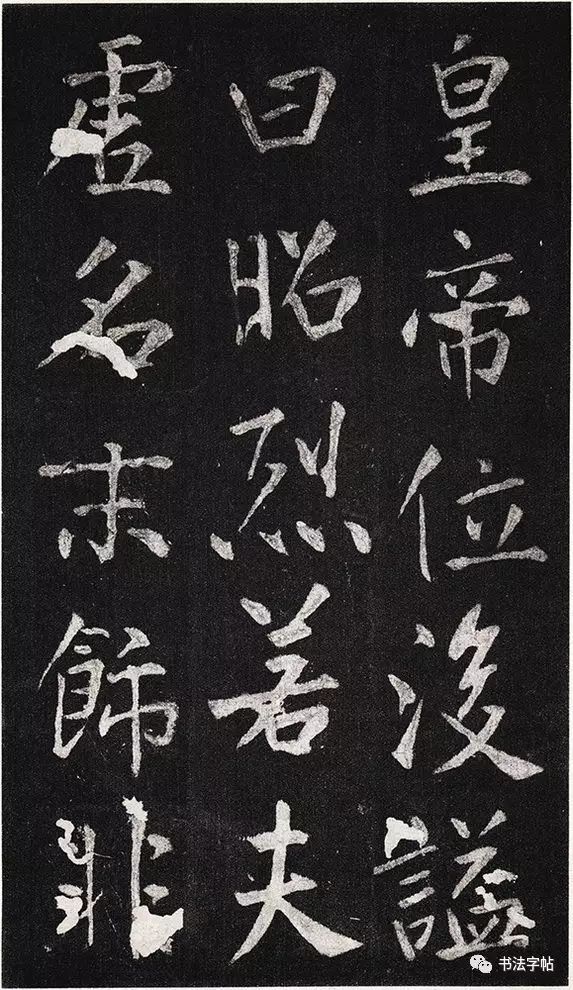 皇帝位後謚
曰昭烈若夫
虛名末飾非
书法字帖